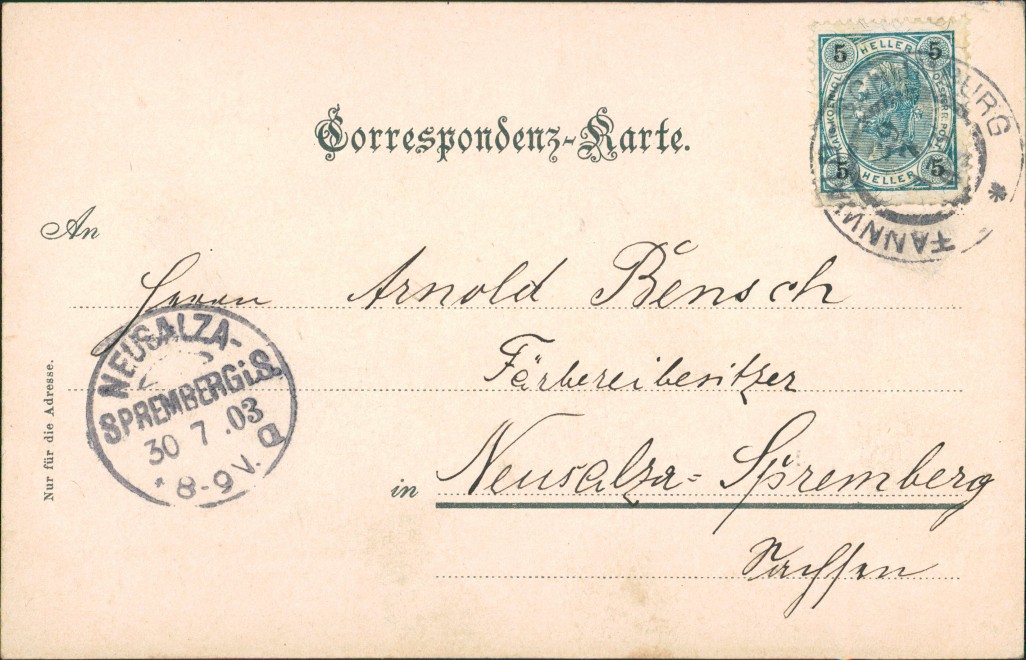 Correspondenz-Karte.
5 HELLER 5
KAIS. KOENIGL. OESTERR. POST
5 HELLER 5
TANN BURG *
An
Herrn Arnold Bensch
Färbereibesitzer
in Neusalza-Spremberg
Sachsen
NEUSALZA-
SPREMBERG i.S.
30 7 .03
* 8-9 V. a
Nur für die Adresse.